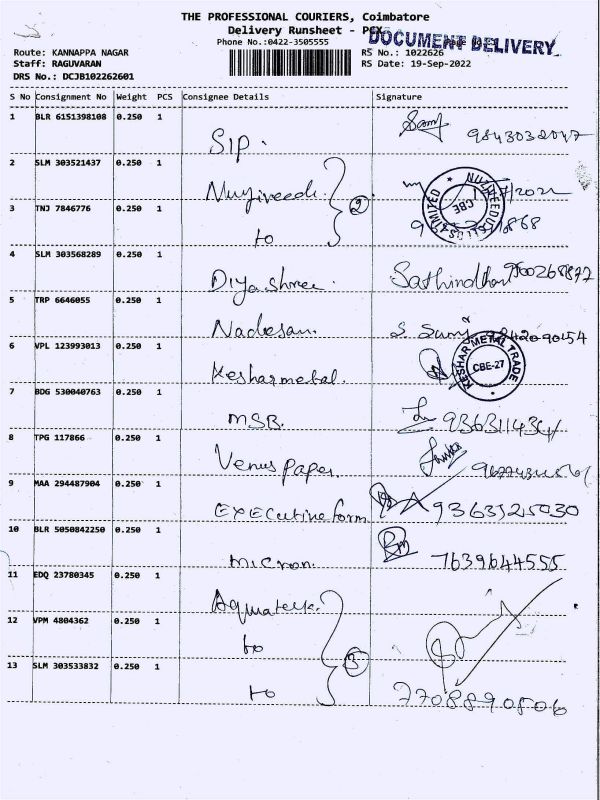 THE PROFESSIONAL COURIERS, Coimbatore
Delivery Runsheet - PCX
DOCUMENT DELIVERY
Phone No.:0422-3505555
Route: KANNAPPA NAGAR
RS No.: 1022626
Staff: RAGUVARAN
RS Date: 19-Sep-2022
DRS No.: DCJB102262601
S No Consignment No Weight PCS Consignee Details Signature
1 BLR 61S1398108 0.250 1
SIP.
9843032047
2 SLM 303521437 0.250 1
3 TNJ 7846776 0.250 1
to
2
LIMITED
CBE
4 SLM 303568289 0.250 1
Diya shree
5 TRP 6646055 0.250 1
Nadesan.
6 VPL 123993013 0.250 1
Keshar metal.
KESHAR METAL TRADE
CBE-27
7 BDG 530040763 0.250 1
MSB.
8 TPG 117866 0.250 1
Venus paper.
9 MAA 294487904 0.250 1
EXECutive form
9363525030
10 BLR 5050842250 0.250 1
micron.
7639644555
11 EDQ 23780345 0.250 1
12 VPM 4804362 0.250 1
to
3
13 SLM 303533832 0.250 1
to
7708890506